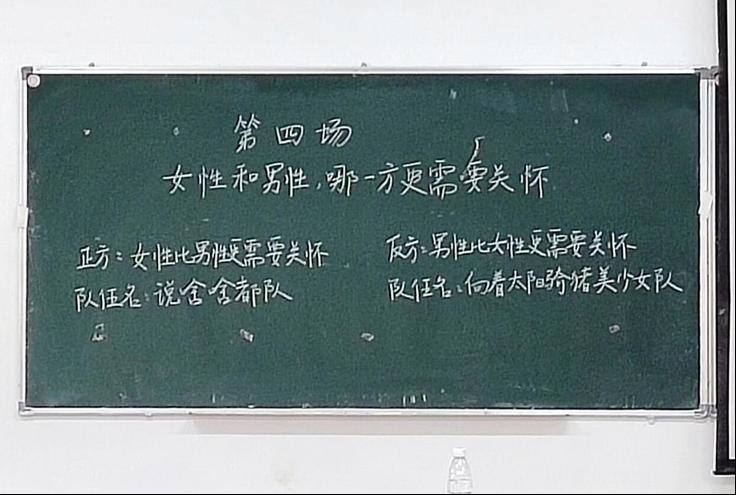 第四场
女性和男性,哪一方更需要关怀
正方:女性比男性更需要关怀
队伍名:说啥啥都队
反方:男性比女性更需要关怀
队伍名:向着太阳骑猪美少女队